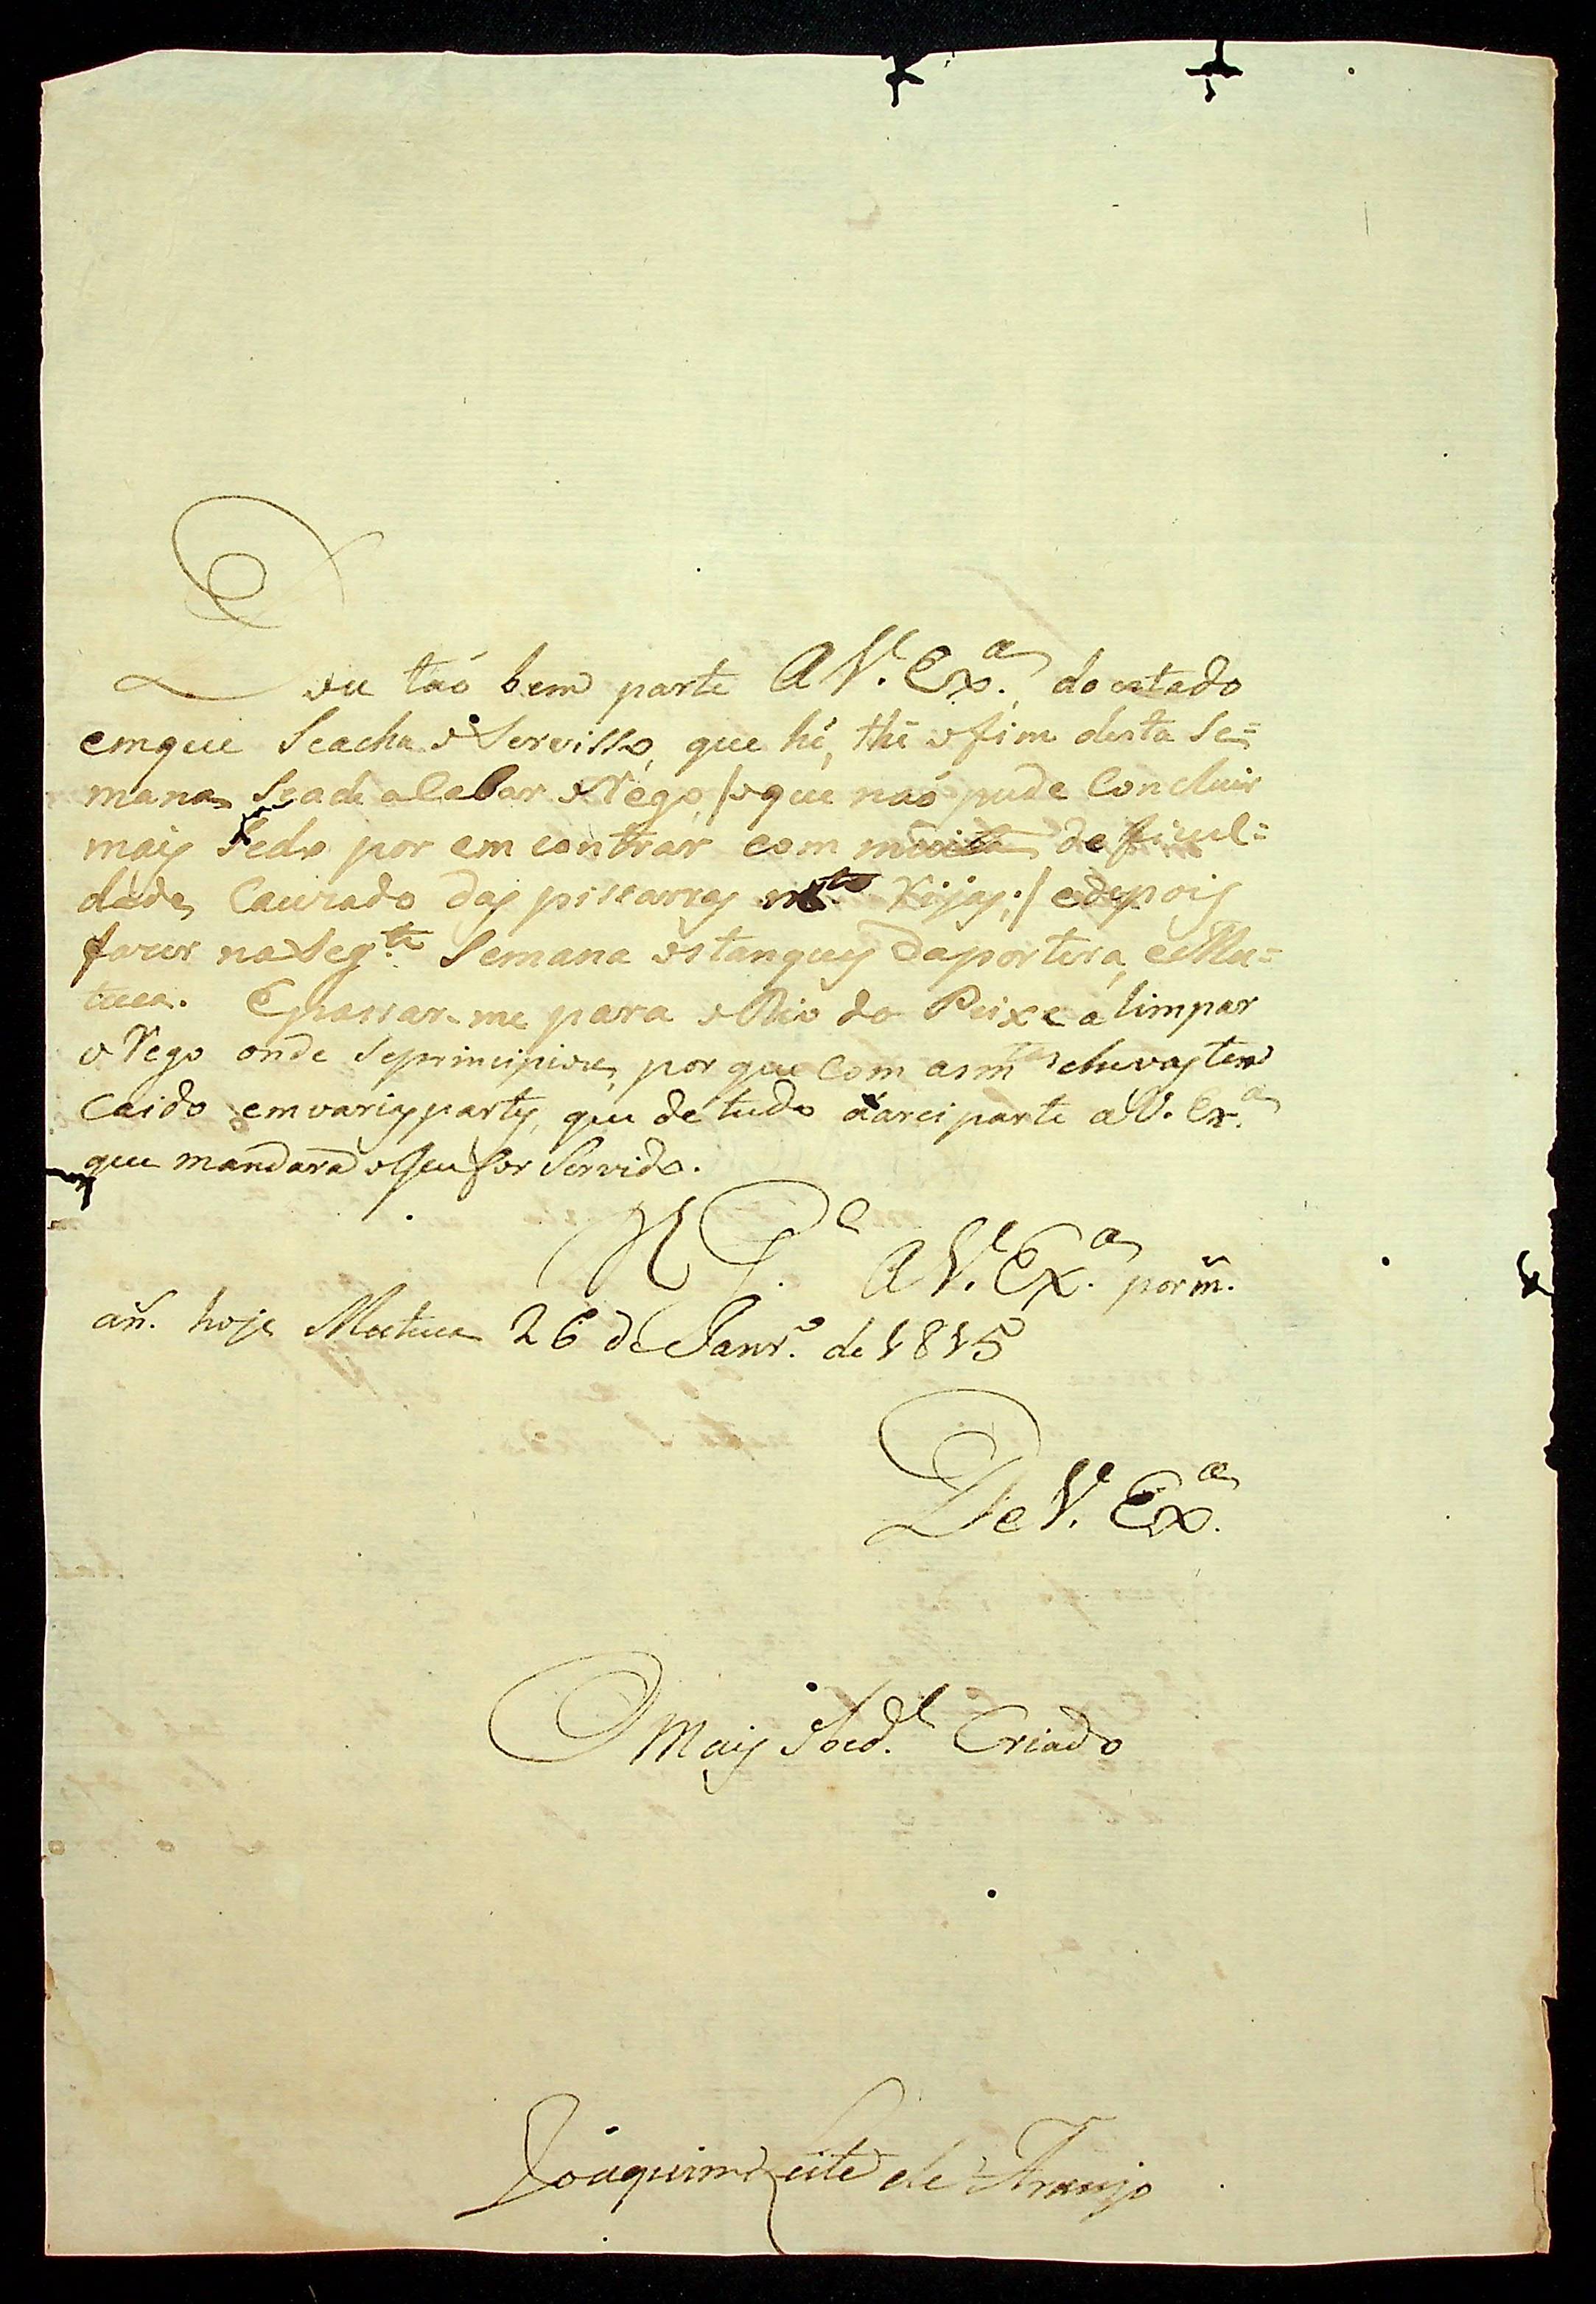 Dou taó bem parte A V. Ex.ª do estado
emque Seacha o Servisso, que hé, thé o fim desta Se=
mana Seade acabar o Rego /o que naó pude Concluir
mais Sedo por em contrar com muita deficul=
dade, Cauzado das pissarras m.to Rijas:/ e depois
fazer na Seg.te Semana os tanques da porteira, e Mu=
tuca. E passar-me para o Rio do Peixe a limpar
o Rego onde Seprincipiou, por que com as m.tas chuvas tem
Caido em varias partes, que de tudo darei parte a V. Ex.ª
que mandará o que for Servido.
A V. Ex.ª por m.
an. hoje Mutuca 26 de Janr.º de 1815
De V. Ex.ª
O mais Criado
Joaquim Leite de Araujo